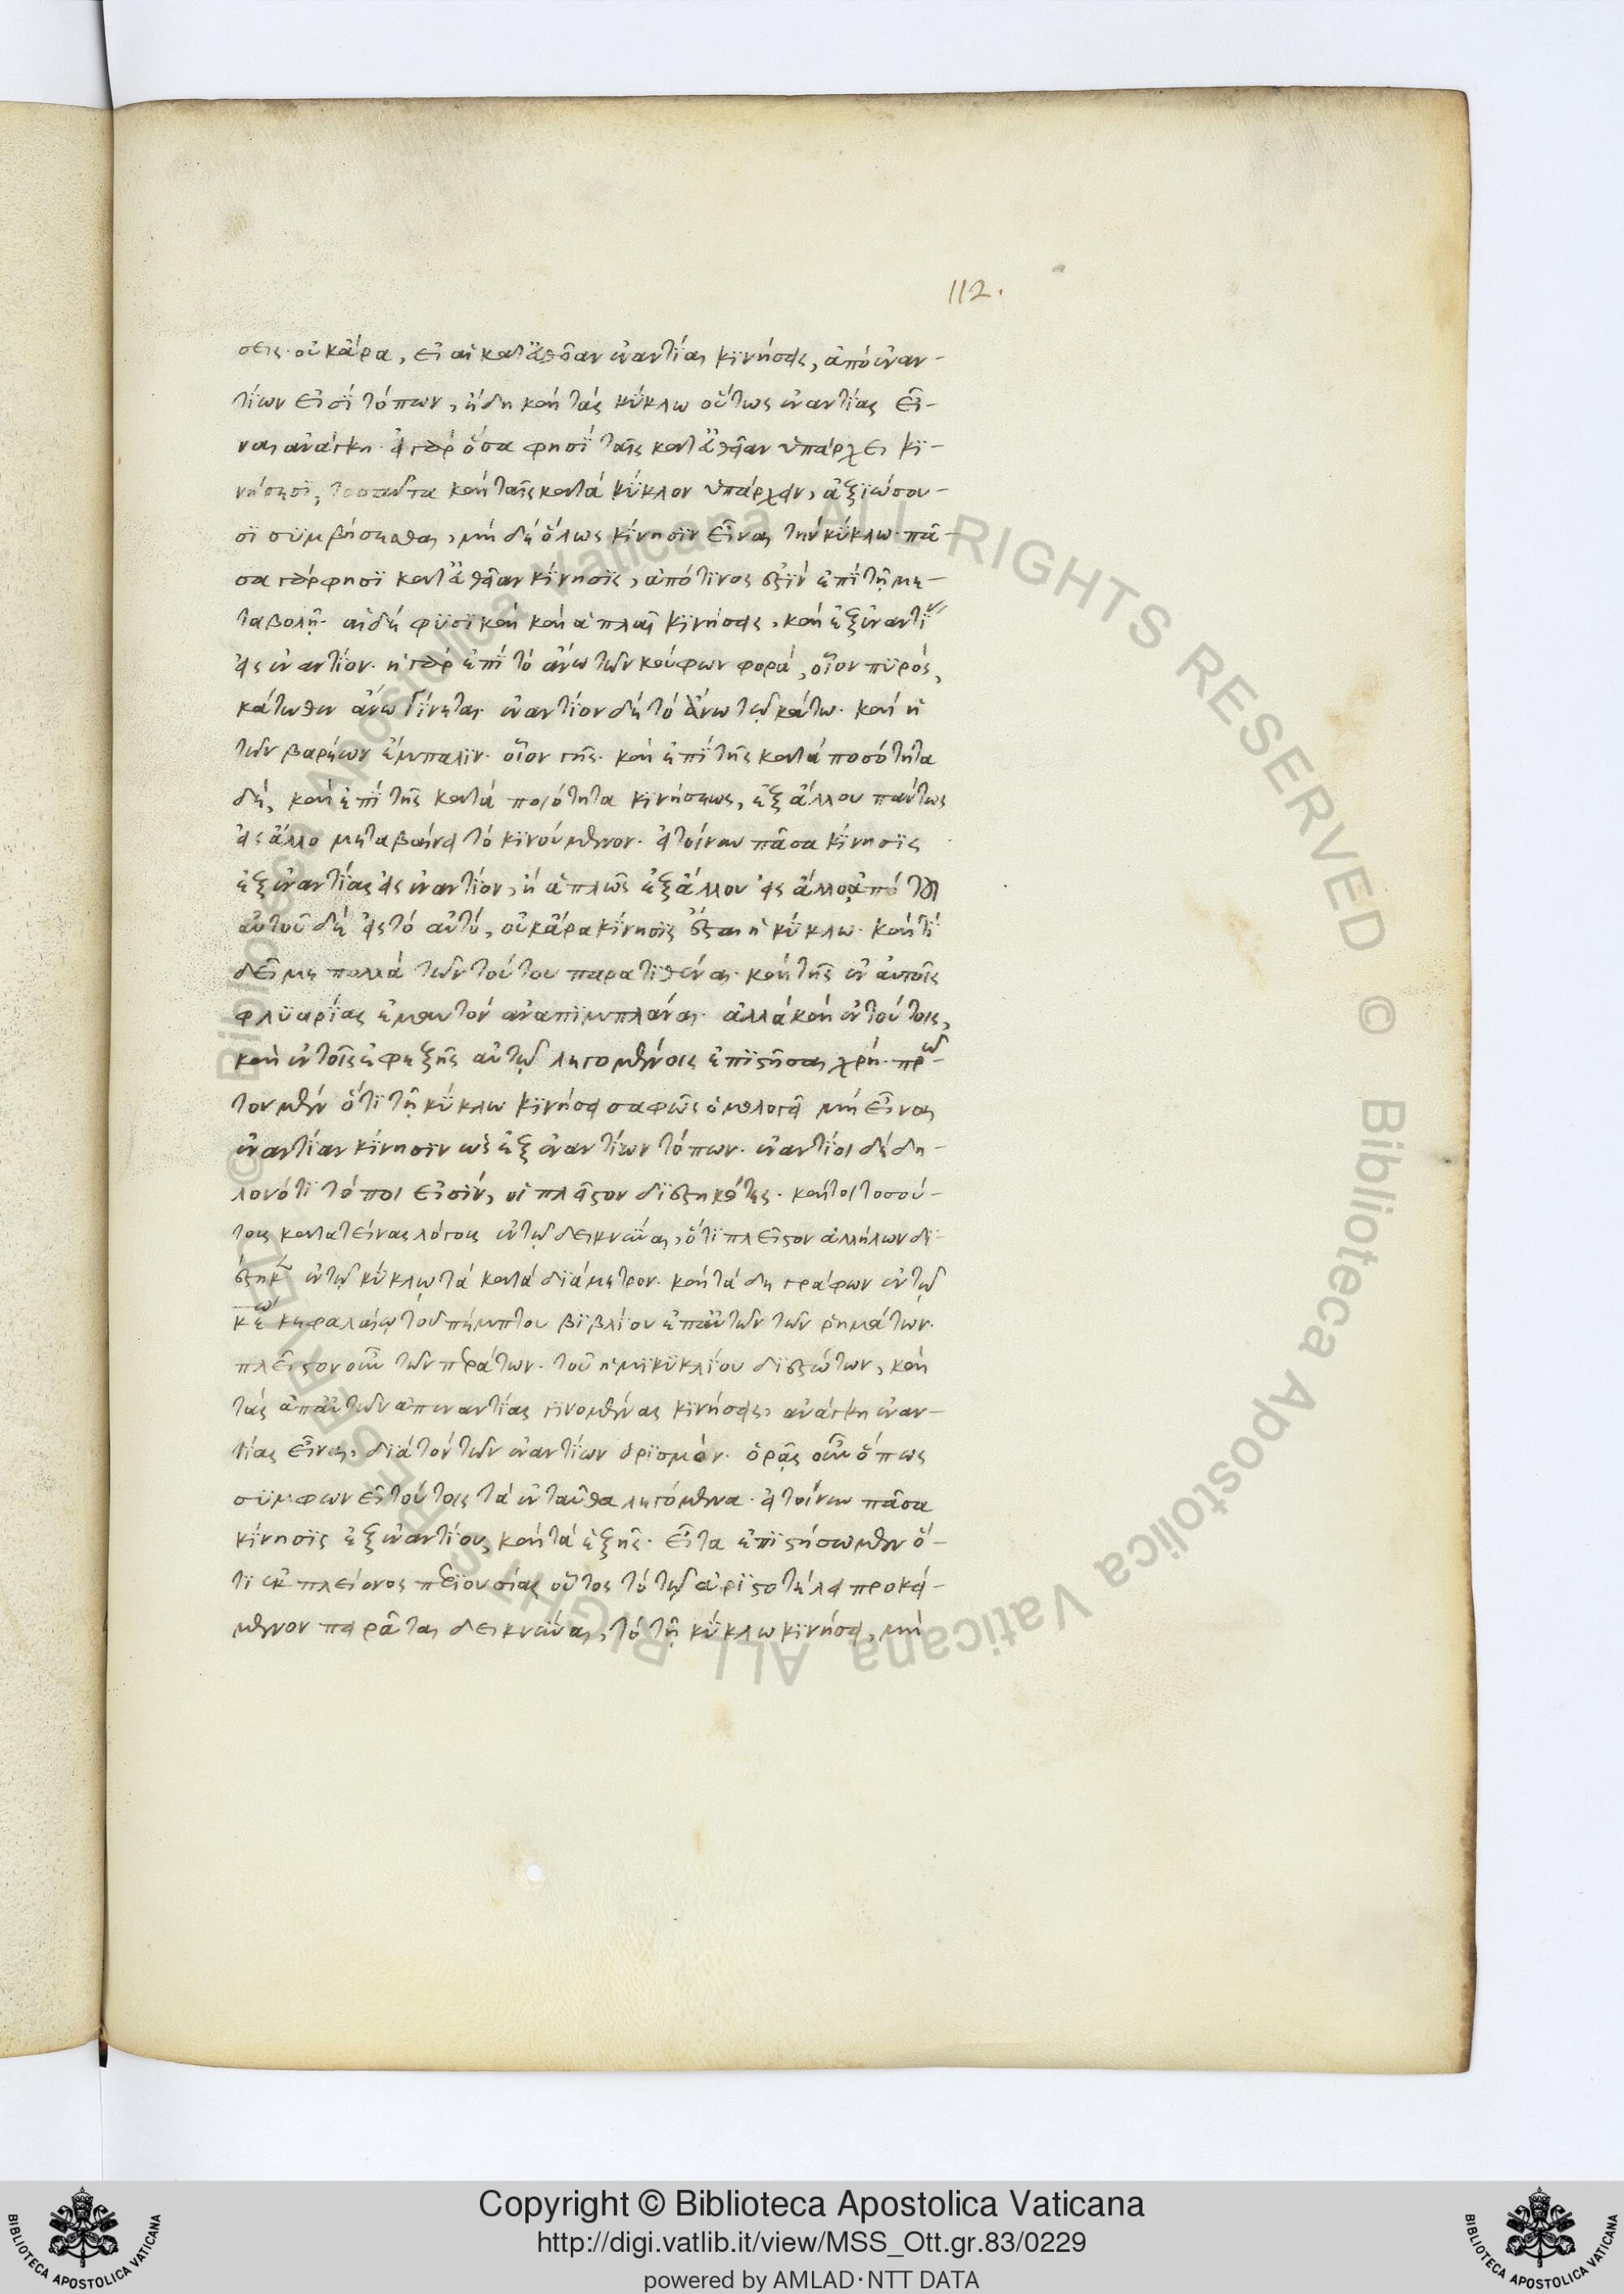 112.
σεις· οὐκ ἄρα, εἰ αἱ κατ' εὐθεῖαν ἐναντίαι κινήσεις, ἀπὸ ἐναν-
τίων εἰσὶ τόπων, ἤδη καὶ τὰς κύκλω οὕτως ἐναντίας εἶ-
ναι ἀνάγκη· εἰ γὰρ ὅσα φησὶ ταῖς κατ' εὐθεῖαν ὑπάρχει κι-
νήσεσι, τοσαῦτα καὶ ταῖς κατὰ κύκλον ὑπάρχειν, ἀξιώσου-
σι συμβήσεσθαι, μὴ δὲ ὅλως κίνησιν εἶναι τὴν κύκλω· πᾶ-
σα γάρ φησι κατ' εὐθεῖαν κίνησις, ἀπό τινος ἐστὶν ἐπί τι μη-
ταβολή· αἱ δὲ φυσικαὶ καὶ ἁπλαῖ κινήσεις, καὶ ἐξ ἐναντί
εἰς ἐναντίον· ἡ γὰρ ἐπὶ τὸ ἄνω τῶν κούφων φορά, οἷον πυρός,
κάτωθεν ἄνω γίνεται· ἐναντίον δὲ τὸ ἄνω τῷ κάτω· καὶ ἡ
τῶν βαρέων ἔμπαλιν· οἷον γῆς· καὶ ἐπὶ τῆς κατὰ ποσότητα
δὲ, καὶ ἐπὶ τῆς κατὰ ποιότητα κινήσεως, ἐξ ἄλλου πάντως
εἰς ἄλλο μεταβαίνει τὸ κινούμενον· εἰ τοίνυν πᾶσα κίνησις
ἐξ ἐναντίας εἰς ἐναντίον, ἢ ἁπλῶς ἐξ ἄλλου εἰς ἄλλο, ἀπὸ τοῦ
αὐτοῦ δὲ εἰς τὸ αὐτό, οὐκ ἄρα κίνησις ἔσται ἡ κύκλω· καὶ τί
δεῖ με πολλὰ τῶν τούτου παρατιθέναι· καὶ τῆς ἐν αὐτοῖς
φλυαρίας ἐμαυτὸν ἀναπιμπλάναι· ἀλλὰ καὶ ἐν τούτοις,
καὶ ἐν τοῖς ἐφεξῆς αὐτῷ λεγομένοις ἐπιστῆσαι χρή· πρῶ-
τον μὲν ὅτι τῇ κύκλω κινήσει σαφῶς ὁμολογεῖ μὴ εἶναι
ἐναντίαν κίνησιν ὡς ἐξ ἐναντίων τόπων· ἐναντίοι δὲ δη-
λονότι τόποι εἰσίν, οἱ πλεῖστον διεστηκότες· καίτοι τοσού-
τους κατατείνας λόγους ἐν τῷ δεικνύναι, ὅτι πλεῖστον ἀλλήλων δι-
έστηκε ἐν τῷ κύκλῳ τὰ κατὰ διάμετρον· καὶ τάδε γράφων ἐν τῷ
κεω κεφαλαίῳ τοῦ πέμπτου βιβλίου ἐπ' αὐτῶν τῶν ῥημάτων·
πλεῖστον οὖν τῶν περάτων· τοῦ ἡμικυκλίου διεστώτων, καὶ
τὰς ἀπ' αὐτῶν ἀπεναντίας γινομένας κινήσεις, ἀνάγκη ἐναν-
τίας εἶναι, διὰ τὸν τῶν ἐναντίων ὁρισμόν· ὁρᾷς οὖν ὅπως
συμφωνεῖ τούτοις τὰ ἐνταῦθα λεγόμενα· εἰ τοίνυν πᾶσα
κίνησις ἐξ ἐναντίου, καὶ τὰ ἑξῆς· εἶτα ἐπιστήσωμεν ὅ-
τι ἐκ πλείονος περιουσίας οὗτος τὸ τῷ ἀριστοτέλει προκεί-
μενον πειρᾶται δεικνύναι, τὸ τῇ κύκλω κινήσει, μὴ
Copyright © Biblioteca Apostolica Vaticana
http://digi.vatlib.it/view/MSS_Ott.gr.83/0229
powered by AMLAD·NTT DATA